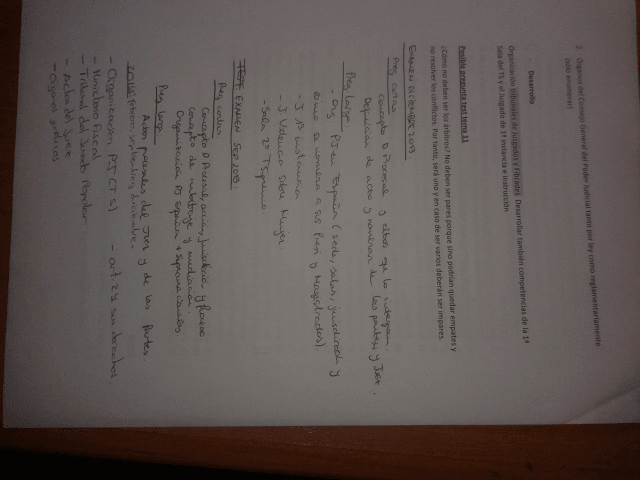 2. Órganos del Consejo General del Poder Judicial tanto por ley como reglamentariamente
(sólo enumerar)
- Desarrollo
Organización tribunales de Juzgados y Desarrollar también competencias de la 1ª
Sala del TS y el Juzgado de 1ª instancia e instrucción
Posible pregunta test tema 11
¿Cómo no deben ser los árbitros? No deben ser pares porque sino podrían quedar empates y
no resolver los conflictos. Por tanto, será uno y en caso de ser varios deberán ser impares.
EXAMEN DICIEMBRE 2013
Preg cortas
concepto D Procesal y que lo integran.
Definición de acto y nombrar de las partes y Juez.
Preg Larga
- Org PJ en España (sede, salas, jurisdicción y
como se nombra a sus Presi y Magistrados).
- J. 1ª Instancia
- J. Violencia sobre Mujer
- Sala 2ª T Supremo
TEST EXAMEN SEP 2013.
Preg cortas
Concepto D Procesal, acción, jurisdicción y Proceso
concepto de arbitraje y mediación.
Organización PJ España +
Preg larga
Actos procesales del Juez y de las Partes.
- Organización PJ (T.S) - art. 24 sus derechos
- Ministerio Fiscal
- Tribunal del Jurado Popular
- Actos del Juez
- Órganos